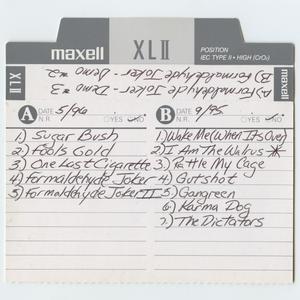 maxell XLII POSITION
IEC TYPE II • HIGH (CrO2)
maxell
XLII
A) Formaldehyde Joker - Demo #3
B) Formaldehyde Joker - Demo #2
A DATE 5/96
N.R. YES NO
1) Sugar Bush
2) Fools Gold
3) One Last Cigarette
4) Formaldehyde Joker
5) Formaldehyde Joker II
B DATE 9/95
N.R. YES NO
1) Wake Me (When It's Over)
2) I Am The Walrus *
3) Rattle My Cage
4) Gutshot
5) Gangreen
6) Karma Dog
7.) The Dictators